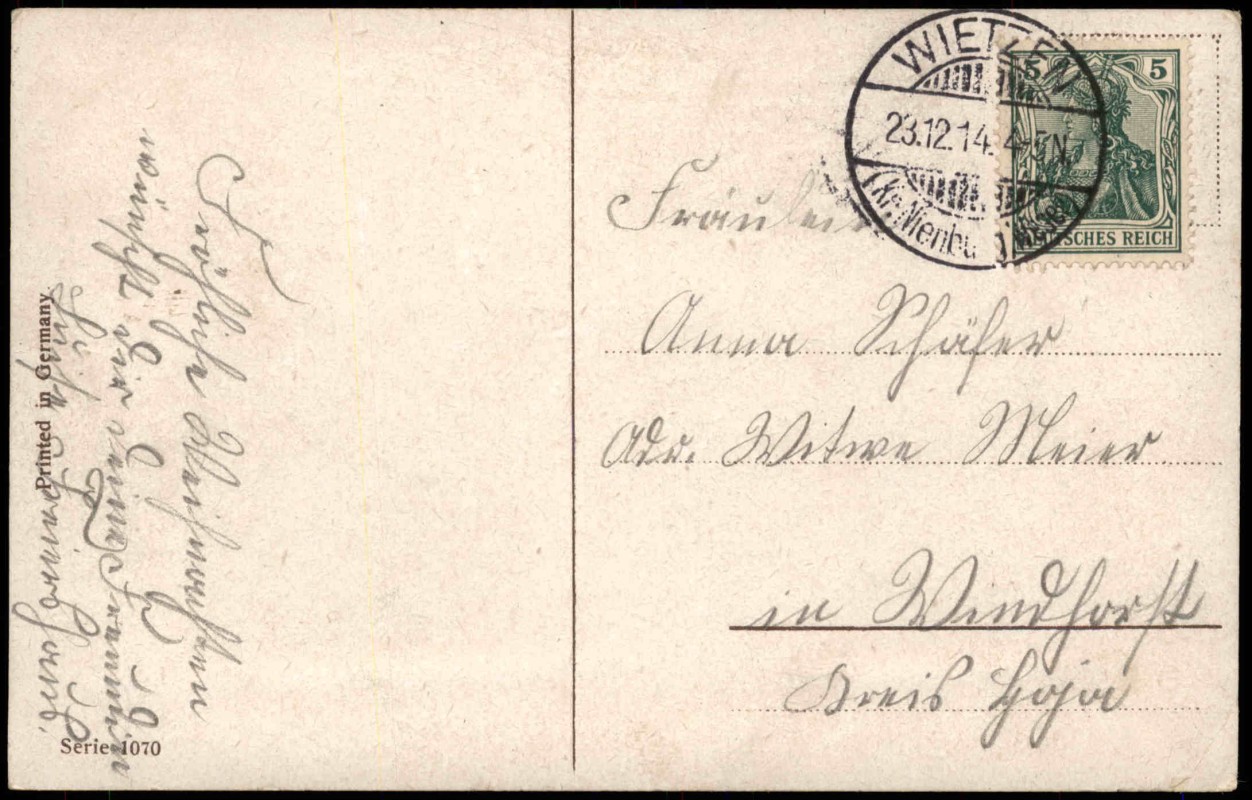 Fröhliche Weihnachten
wünscht dir deine Freundin
Printed in Germany
Serie 1070
WIETZEN
23.12.14. 4-5N.
(Kr. Nienbu
5 5
DEUTSCHES REICH
Fräulein
Anna Schäfer
Adr. Witwe Meier
in Windhorst
Kreis Hoja